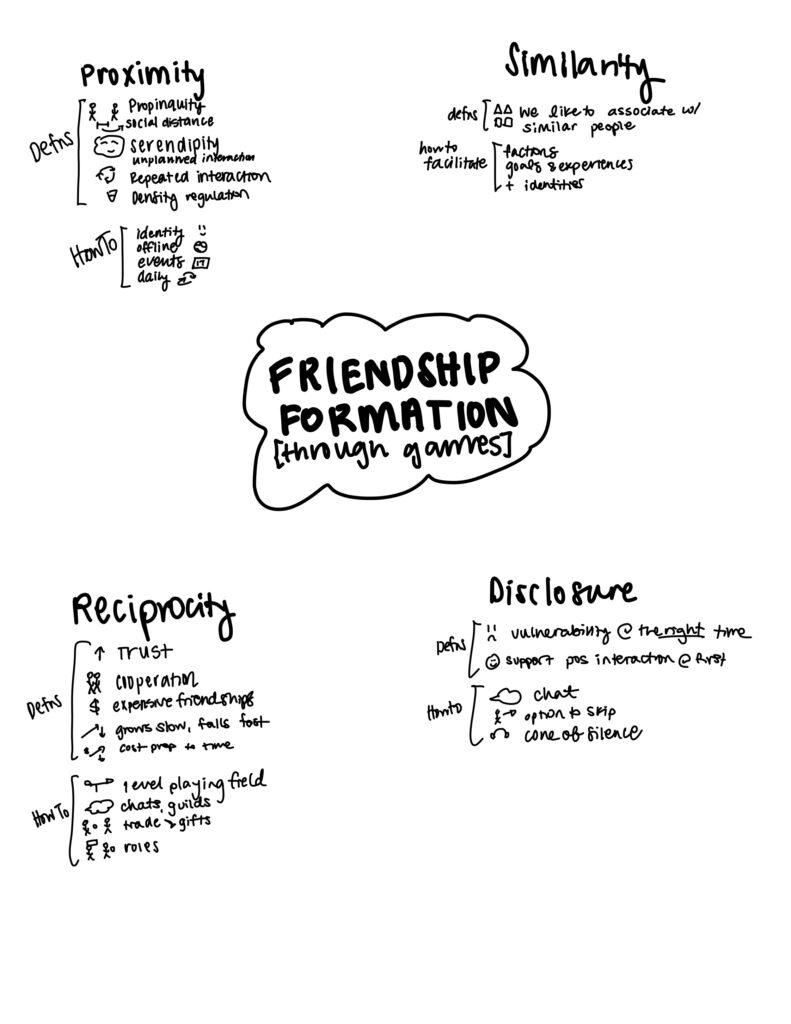 Proximity
Defns
Propinquity
social distance
serendipity
unplanned interaction
Repeated interaction
Density regulation
HowTo
identity
offline
events
17
daily
Similarity
defns
We like to associate w/
similar people
how to
facilitate
factions
goals & experiences
+ identities
FRIENDSHIP
FORMATION
[through games]
Reciprocity
Defns
↑ Trust
cooperation
$ expensive friendships
grows slow, falls fast
cost prop to time
HowTo
level playing field
chats, guilds
trade & gifts
roles
Disclosure
Defns
vulnerability @ the right time
support pos interaction @ first
Howto
chat
option to skip
cone of silence